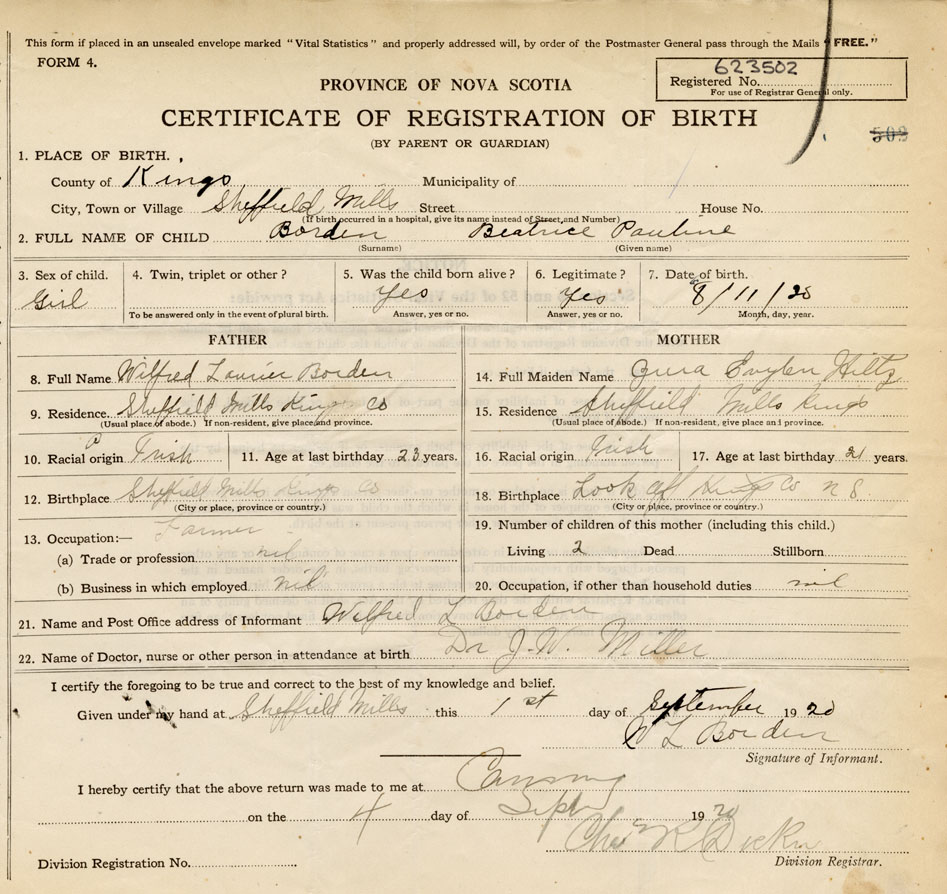 This form if placed in an unsealed envelope marked "Vital Statistics" and properly addressed will, by order of the Postmaster General pass through the Mails "FREE."
FORM 4.
623502
Registered No.
For use of Registrar General only.
PROVINCE OF NOVA SCOTIA
CERTIFICATE OF REGISTRATION OF BIRTH
(BY PARENT OR GUARDIAN)
509
1. PLACE OF BIRTH.
County of Kings Municipality of
City, Town or Village Sheffield Mills Street House No.
(If birth occurred in a hospital, give its name instead of Street and Number)
2. FULL NAME OF CHILD Borden Beatrice Pauline
(Surname) (Given name)
3. Sex of child. 4. Twin, triplet or other? 5. Was the child born alive? 6. Legitimate? 7. Date of birth.
Girl Yes Yes 8/11/20
To be answered only in the event of plural birth. Answer, yes or no. Answer, yes or no. Month, day, year.
FATHER MOTHER
8. Full Name Wilfred Laurier Borden 14. Full Maiden Name Evylen Hiltz
9. Residence. Sheffield Mills Kings Co 15. Residence Sheffield Mills Kings
(Usual place of abode.) If non-resident, give place and province. (Usual place of abode.) If non-resident, give place and province.
10. Racial origin Irish 11. Age at last birthday 23 years. 16. Racial origin Irish 17. Age at last birthday 21 years.
12. Birthplace Sheffield Mills Kings Co 18. Birthplace Look off Kings Co N S
(City or place, province or country.) (City or place, province or country.)
13. Occupation:— Farmer 19. Number of children of this mother (including this child.)
(a) Trade or profession nil Living 2 Dead Stillborn
(b) Business in which employed nil 20. Occupation, if other than household duties nil
21. Name and Post Office address of Informant Wilfred L Borden
22. Name of Doctor, nurse or other person in attendance at birth Dr J. W. Miller
I certify the foregoing to be true and correct to the best of my knowledge and belief.
Given under my hand at Sheffield Mills this 1st day of September 1920
W L Borden
Signature of Informant.
I hereby certify that the above return was made to me at Canning
on the 4 day of Sept 1920
Division Registration No. Division Registrar.